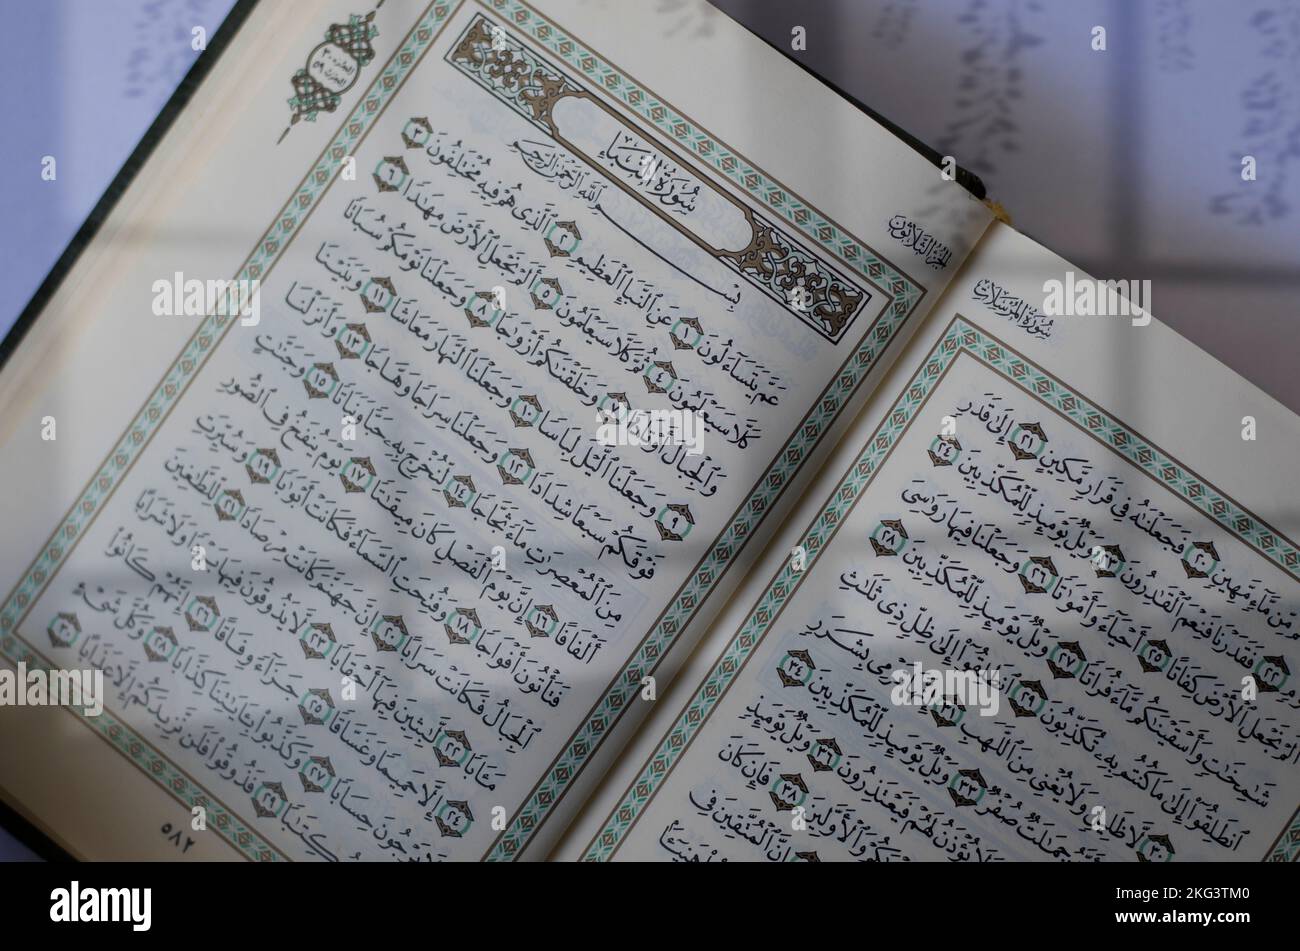 سُورَةُ المُرْسَلَات
مِن مَّآءٍ مَّهِينٍ ٢٠ فَجَعَلْنَٰهُ فِى قَرَارٍ مَّكِينٍ ٢١ إِلَىٰ قَدَرٍ
٢٢ فَقَدَرْنَا فَنِعْمَ ٱلْقَٰدِرُونَ ٢٣ وَيْلٌ يَوْمَئِذٍ لِّلْمُكَذِّبِينَ ٢٤
أَلَمْ نَجْعَلِ ٱلْأَرْضَ كِفَاتًا ٢٥ أَحْيَآءً وَأَمْوَٰتًا ٢٦ وَجَعَلْنَا فِيهَا رَوَٰسِىَ
شَٰمِخَٰتٍ وَأَسْقَيْنَٰكُم مَّآءً فُرَاتًا ٢٧ وَيْلٌ يَوْمَئِذٍ لِّلْمُكَذِّبِينَ ٢٨
ٱنطَلِقُوٓا۟ إِلَىٰ مَا كُنتُم بِهِۦ تُكَذِّبُونَ ٢٩ ٱنطَلِقُوٓا۟ إِلَىٰ ظِلٍّ ذِى ثَلَٰثِ
٣٠ لَّا ظَلِيلٍ وَلَا يُغْنِى مِنَ ٱللَّهَبِ ٣١ إِنَّهَا تَرْمِى بِشَرَرٍ
جِمَٰلَتٌ صُفْرٌ ٣٣ وَيْلٌ يَوْمَئِذٍ لِّلْمُكَذِّبِينَ ٣٤
وَلَا يُؤْذَنُ لَهُمْ فَيَعْتَذِرُونَ ٣٦ وَيْلٌ يَوْمَئِذٍ
وَٱلْأَوَّلِينَ ٣٨ فَإِن كَانَ
إِنَّ ٱلْمُتَّقِينَ فِى
هَنِيٓـًٔۢا
الجُزءُ الثَّلَاثُونَ
الجزء ٣٠
الحزب ٥٩
سُورَةُ النَّبَإِ
بِسْمِ ٱللَّهِ ٱلرَّحْمَٰنِ ٱلرَّحِيمِ
عَمَّ يَتَسَآءَلُونَ ١ عَنِ ٱلنَّبَإِ ٱلْعَظِيمِ ٢ ٱلَّذِى هُمْ فِيهِ مُخْتَلِفُونَ ٣
كَلَّا سَيَعْلَمُونَ ٤ ثُمَّ كَلَّا سَيَعْلَمُونَ ٥ أَلَمْ نَجْعَلِ ٱلْأَرْضَ مِهَٰدًا ٦
وَٱلْجِبَالَ أَوْتَادًا ٧ وَخَلَقْنَٰكُمْ أَزْوَٰجًا ٨ وَجَعَلْنَا نَوْمَكُمْ سُبَاتًا
٩ وَجَعَلْنَا ٱلَّيْلَ لِبَاسًا ١٠ وَجَعَلْنَا ٱلنَّهَارَ مَعَاشًا ١١ وَبَنَيْنَا
فَوْقَكُمْ سَبْعًا شِدَادًا ١٢ وَجَعَلْنَا سِرَاجًا وَهَّاجًا ١٣ وَأَنزَلْنَا
مِنَ ٱلْمُعْصِرَٰتِ مَآءً ثَجَّاجًا ١٤ لِّنُخْرِجَ بِهِۦ حَبًّا وَنَبَاتًا ١٥ وَجَنَّٰتٍ
أَلْفَافًا ١٦ إِنَّ يَوْمَ ٱلْفَصْلِ كَانَ مِيقَٰتًا ١٧ يَوْمَ يُنفَخُ فِى ٱلصُّورِ
فَتَأْتُونَ أَفْوَاجًا ١٨ وَفُتِحَتِ ٱلسَّمَآءُ فَكَانَتْ أَبْوَٰبًا ١٩ وَسُيِّرَتِ
ٱلْجِبَالُ فَكَانَتْ سَرَابًا ٢٠ إِنَّ جَهَنَّمَ كَانَتْ مِرْصَادًا ٢١ لِّلطَّٰغِينَ
مَـَٔابًا ٢٢ لَّٰبِثِينَ فِيهَآ أَحْقَابًا ٢٣ لَّا يَذُوقُونَ فِيهَا بَرْدًا وَلَا شَرَابًا
٢٤ إِلَّا حَمِيمًا وَغَسَّاقًا ٢٥ جَزَآءً وِفَاقًا ٢٦ إِنَّهُمْ كَانُوا۟
يَرْجُونَ حِسَابًا ٢٧ وَكَذَّبُوا۟ بِـَٔايَٰتِنَا كِذَّابًا ٢٨ وَكُلَّ شَىْءٍ
كِتَٰبًا ٢٩ فَذُوقُوا۟ فَلَن نَّزِيدَكُمْ إِلَّا عَذَابًا ٣٠
٥٨٢
alamy
Image ID: 2KG3TM0
www.alamy.com